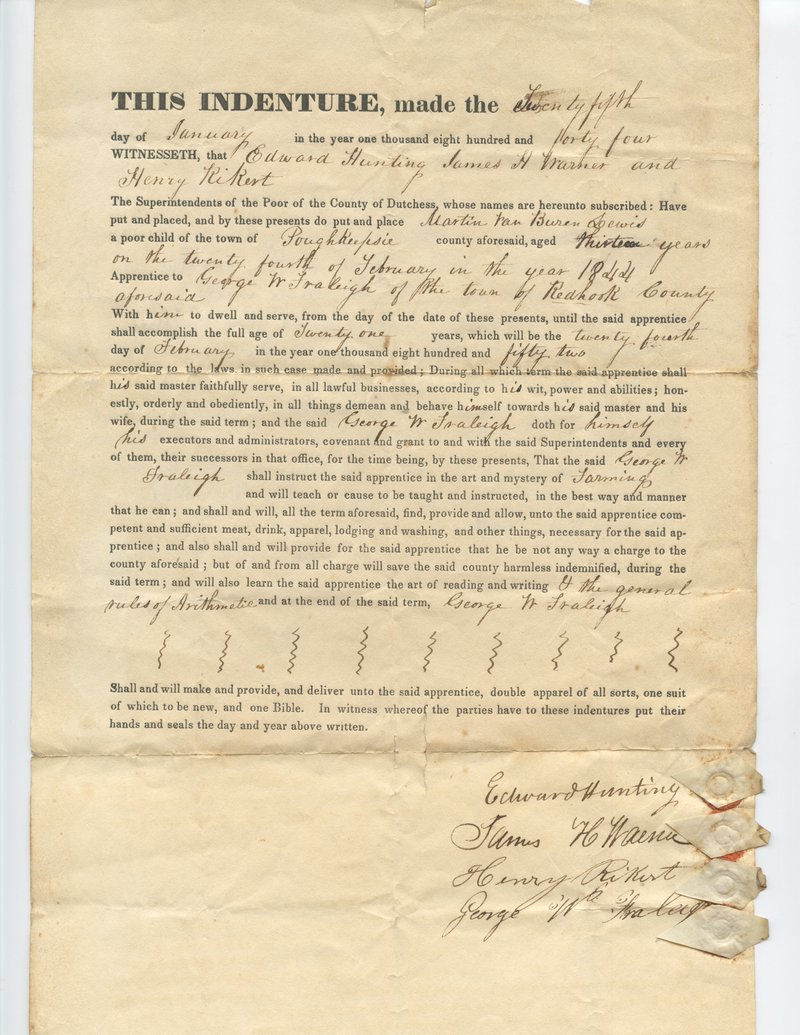 THIS INDENTURE, made the Twenty fifth
day of January in the year one thousand eight hundred and forty four
WITNESSETH, that Edward Hunting James H Warner and
Henry Rikert
The Superintendents of the Poor of the County of Dutchess, whose names are hereunto subscribed: Have
put and placed, and by these presents do put and place Martin Van Buren Lewis
a poor child of the town of Poughkeepsie county aforesaid, aged thirteen years
on the twenty fourth of February in the year 1844
Apprentice to George W Fraleigh of the town of Redhook County
aforesaid
With him to dwell and serve, from the day of the date of these presents, until the said apprentice
shall accomplish the full age of Twenty one years, which will be the twenty fourth
day of February in the year one thousand eight hundred and fifty two
according to the laws in such case made and provided; During all which term the said apprentice shall
his said master faithfully serve, in all lawful businesses, according to his wit, power and abilities; hon-
estly, orderly and obediently, in all things demean and behave himself towards his said master and his
wife, during the said term; and the said George W Fraleigh doth for himself
his executors and administrators, covenant and grant to and with the said Superintendents and every
of them, their successors in that office, for the time being, by these presents, That the said George W
Fraleigh shall instruct the said apprentice in the art and mystery of Farming
and will teach or cause to be taught and instructed, in the best way and manner
that he can; and shall and will, all the term aforesaid, find, provide and allow, unto the said apprentice com-
petent and sufficient meat, drink, apparel, lodging and washing, and other things, necessary for the said ap-
prentice; and also shall and will provide for the said apprentice that he be not any way a charge to the
county aforesaid; but of and from all charge will save the said county harmless indemnified, during the
said term; and will also learn the said apprentice the art of reading and writing & the general
rules of Arithmetic and at the end of the said term, George W Fraleigh
Shall and will make and provide, and deliver unto the said apprentice, double apparel of all sorts, one suit
of which to be new, and one Bible. In witness whereof the parties have to these indentures put their
hands and seals the day and year above written.
Edward Hunting
James H Warner
Henry Rikert
George Wm Fraleigh